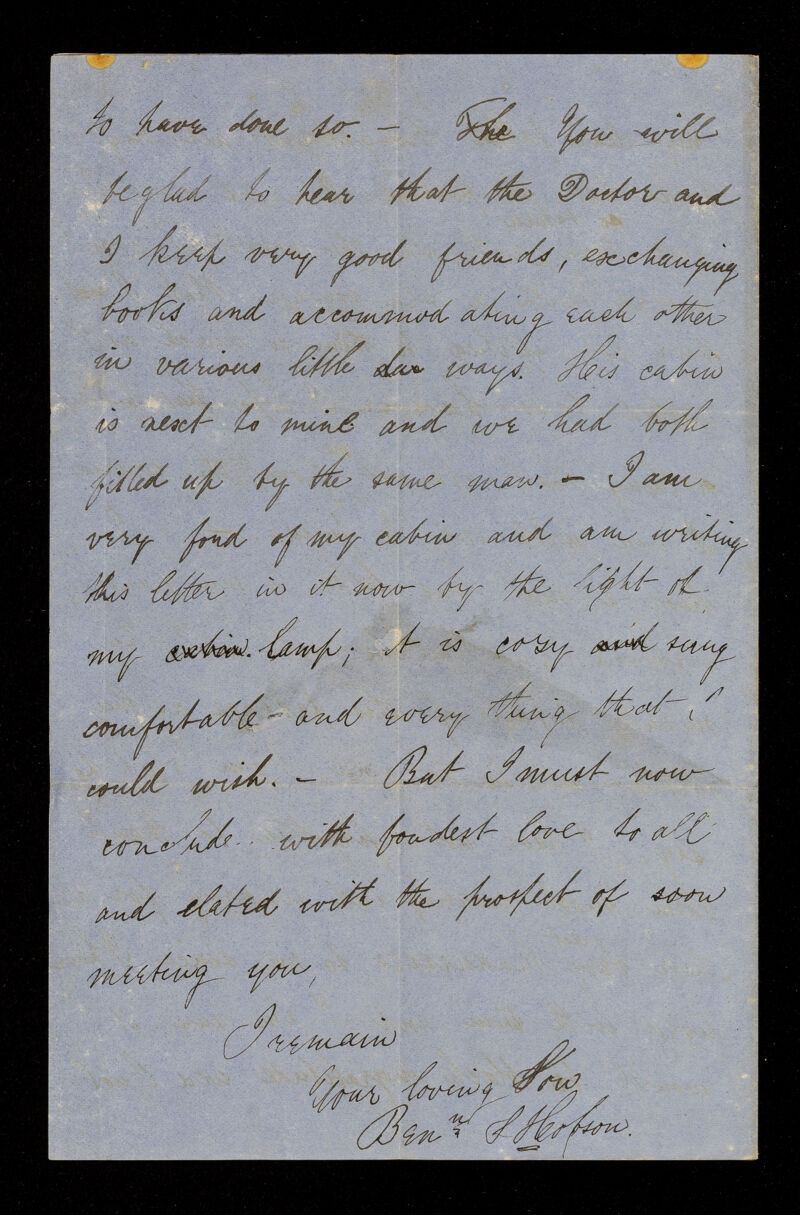 to have done so. — The You will
be glad to hear that the Doctor and
I keep very good friends, exchanging
books and accommodating each other
in various little ways. His cabin
is next to mine and we had both
filled up by the same man. — I am
very fond of my cabin and am writing
this letter in it now by the light of
my cabin. lamp; it is cozy and snug
comfortable - and every thing that I
could wish. — But I must now
conclude with fondest love to all
and elated with the prospect of soon
meeting you,
I remain
Your loving Son
Benn S Hobson.